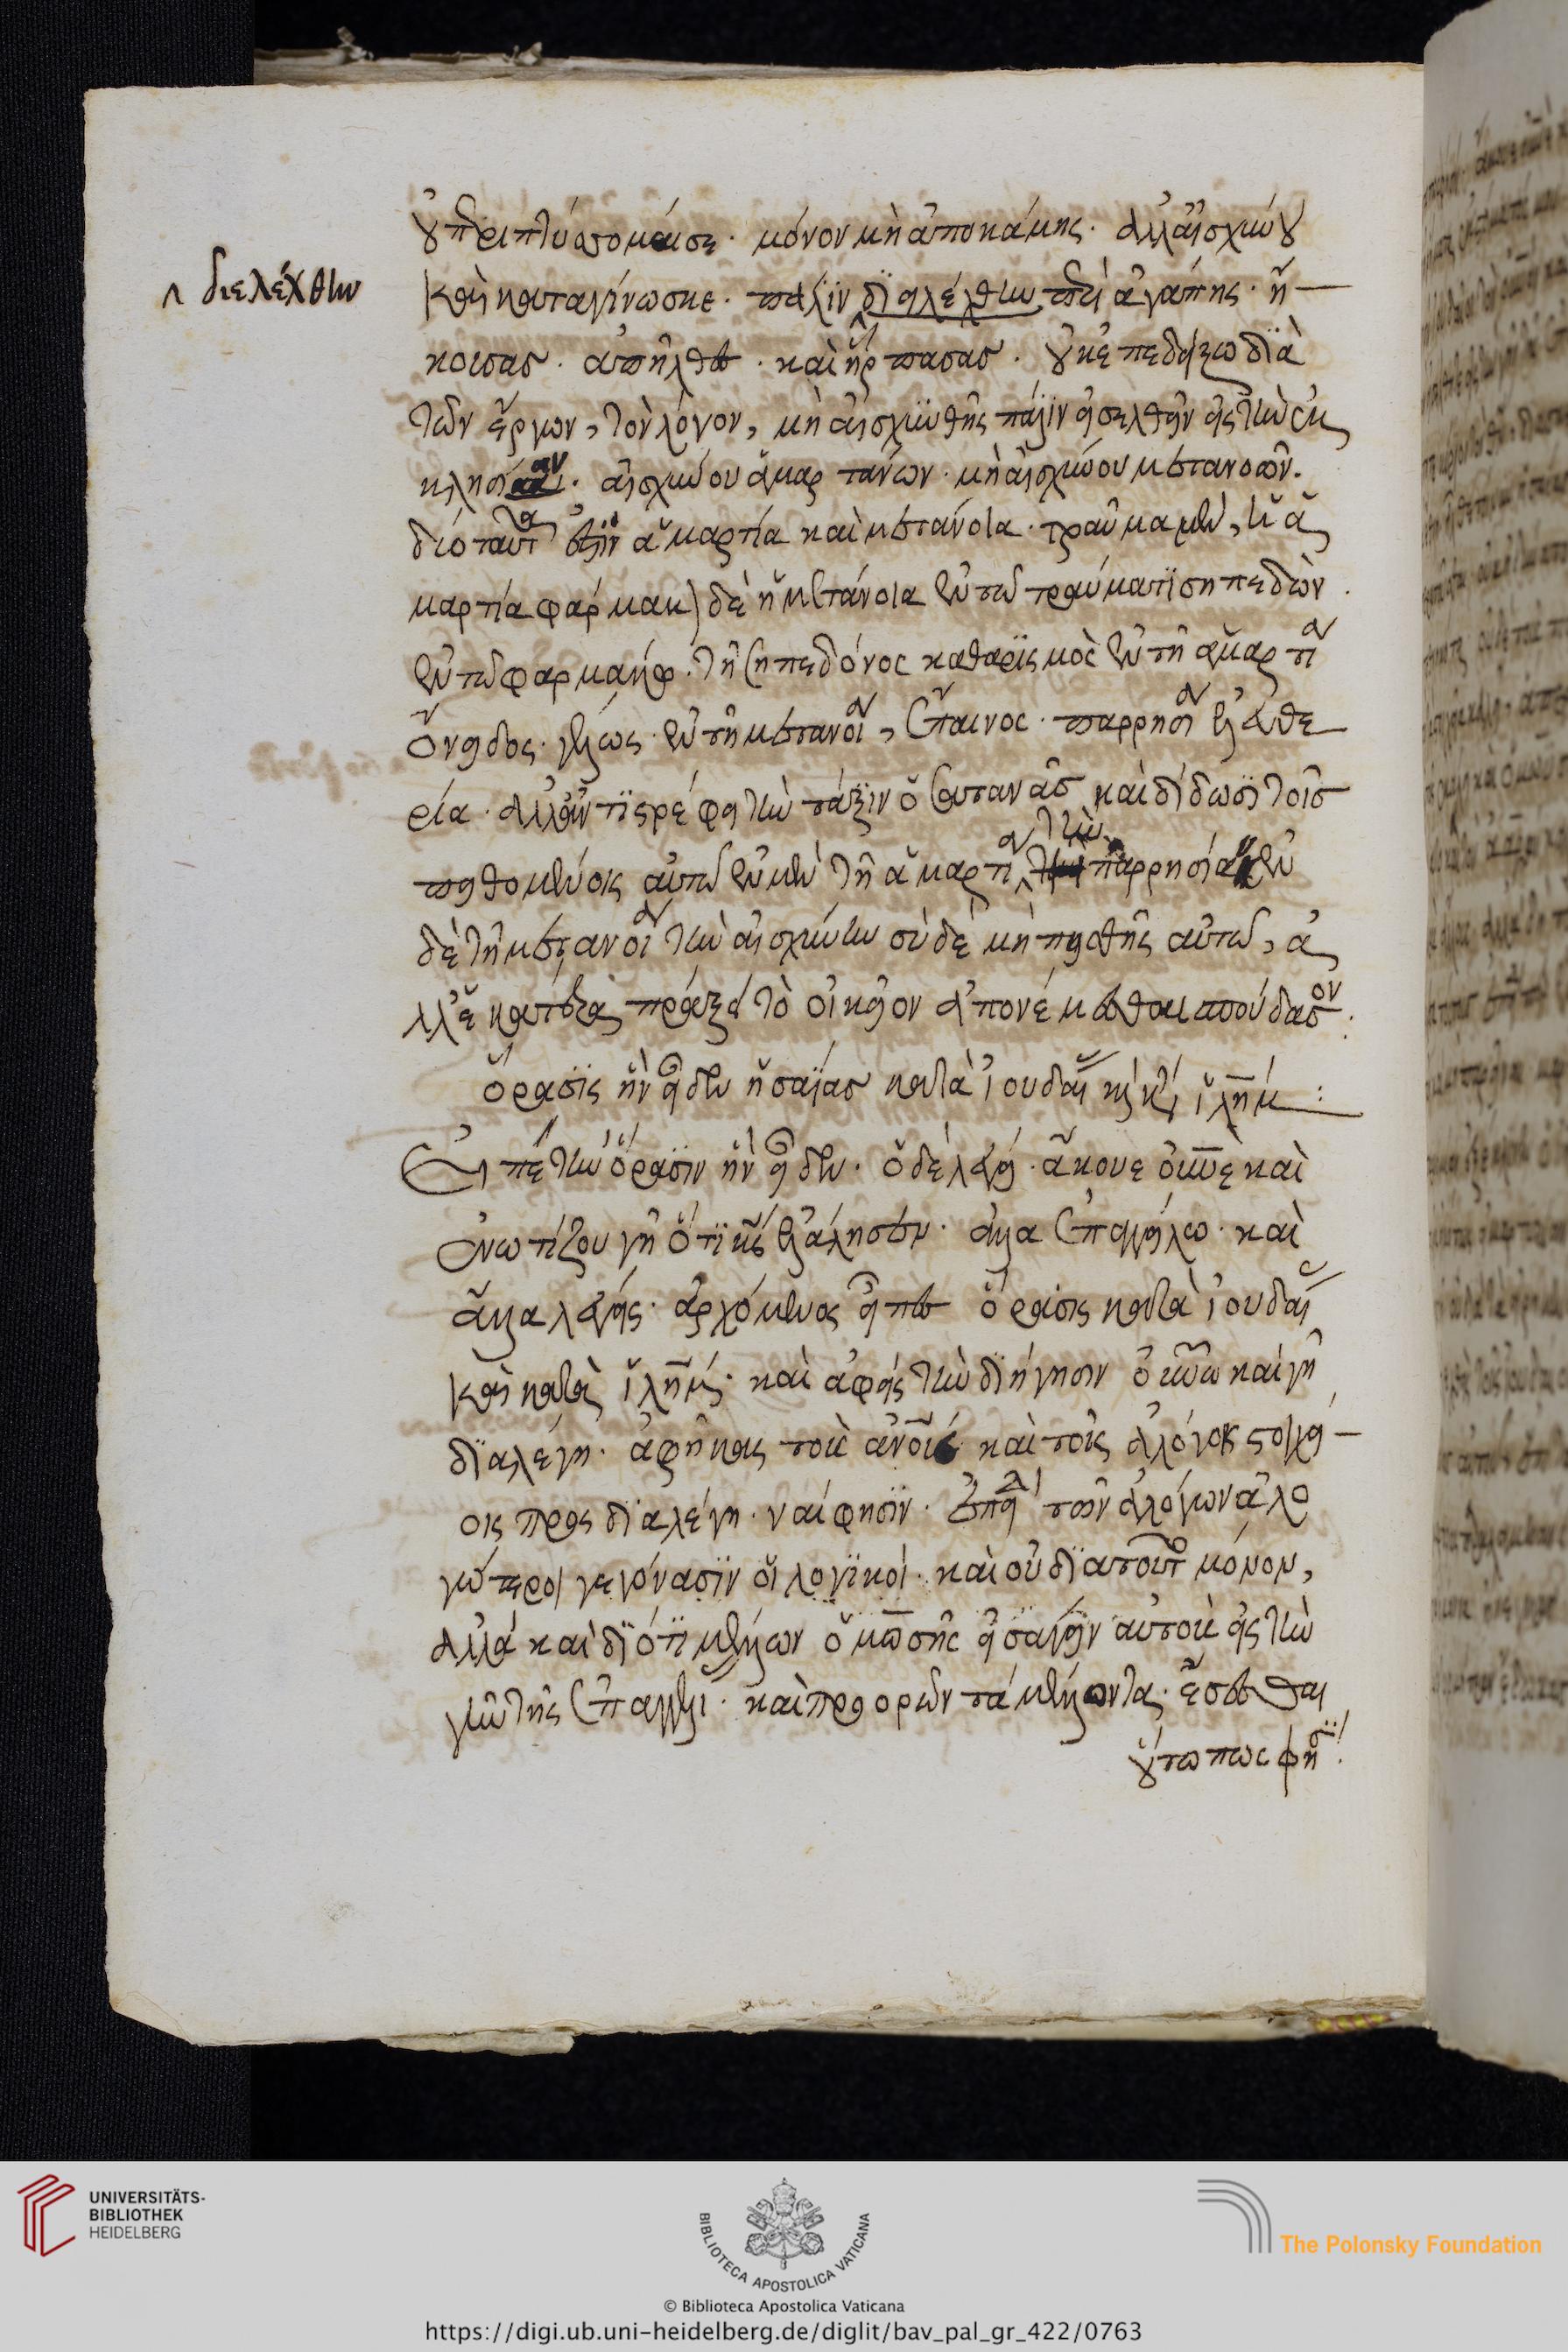 διελέχθην
οὐ περιπτύσσομαί σε. μόνον μὴ ἀποκάμης. ἀλλ' αἰσχύνου
καὶ καταγίνωσκε. πάλιν διηλέχθην περὶ ἀγάπης. ἤ
κουσας. ἀπῆλθες. καὶ ἥρπασας. οὐκ ἐπεδείξω διὰ
τῶν ἔργων, τὸν λόγον, μὴ αἰσχυνθῆς πάλιν εἰσελθεῖν εἰς τὴν ἐκ
κλησίαν. αἰσχύνου ἁμαρτάνων. μὴ αἰσχύνου μετανοῶν.
δύο ταῦτά ἐστιν ἁμαρτία καὶ μετάνοια. τραῦμα μὲν, ἡ ἁ
μαρτία φάρμακον δὲ ἡ μετάνοια ἐν τῶ τραύματι σηπεδὼν
ἐν τῶ φαρμάκω. τῆς σηπεδόνος καθαρισμὸς ἐν τῆ ἁμαρτία
ὄνειδος. γέλως. ἐν τῆ μετανοία, ἔπαινος. παρρησία ἐλευθε
ρία. ἀλλ' ἀντιστρέφει τὴν τάξιν ὁ σατανᾶς καὶ δίδωσι τοῖς
πειθομένοις αὐτῶ ἐν μὲν τῆ ἁμαρτία τὴν παρρησίαν ἐν
δὲ τῆ μετανοία τὴν αἰσχύνην σὺ δὲ μὴ πεισθῆς αὐτῶ, ἀ
λλ' ἑκατέρα πράξει τὸ οἰκεῖον ἀπονέμεσθαι σπούδασον
ὅρασις ἣν εἶδεν ἡσαΐας κατὰ ἰουδαίας καὶ κατὰ ἰλημ
Εἰπὲ τὴν ὅρασιν ἣν εἶδεν. ὁ δὲ λέγει. ἄκουε οὐνὲ καὶ
ἐνωτίζου γῆ ὅτι κς ἐλάλησεν. ἄλλα ἐπαγγέλλη. καὶ
ἄλλα λέγεις. ἀρχόμενος εἶπες ὅρασις κατὰ ἰουδαίας
καὶ κατὰ ἰλημ. καὶ ἀφεὶς τὴν διήγησιν οὐνῶ καὶ γῆ
διαλέγη. ἀφῆκας τοὺς ἀνους καὶ τοῖς ἀλόγοις στοιχεί
οις προσδιαλέγη. ναί φησιν. ἐπειδὴ τῶν ἀλόγων ἀλο
γώτεροι γεγόνασιν οἱ λογικοί. καὶ οὐ διατοῦτο μόνον,
ἀλλὰ καὶ διότι μέλλων ὁ μωσῆς εἰσάγειν αὐτοὺς εἰς τὴν
γῆν τῆς ἐπαγγελίας. καὶ προορῶν τὰ μέλλοντα. ἔσεσθαι
οὕτω πως φησί
UNIVERSITÄTS-
BIBLIOTHEK
HEIDELBERG
BIBLIOTECA APOSTOLICA VATICANA
The Polonsky Foundation
© Biblioteca Apostolica Vaticana
https://digi.ub.uni-heidelberg.de/diglit/bav_pal_gr_422/0763